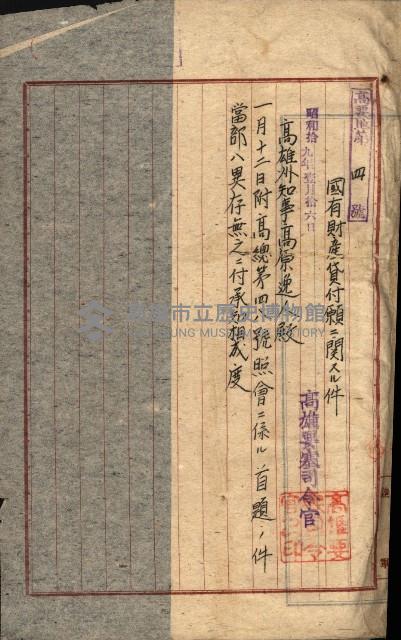 高要地第四號
國有財產貸付願ニ関スル件
昭和拾九年壹月拾六日
高雄要塞司令官
高雄州知事高原逸人殿
一月十二日附高總第四號照會ニ係ル首題ノ件
當部ハ異存無之ニ付承知相成度
高雄市立歷史博物館
KAOHSIUNG MUSEUM OF HISTORY
陸軍